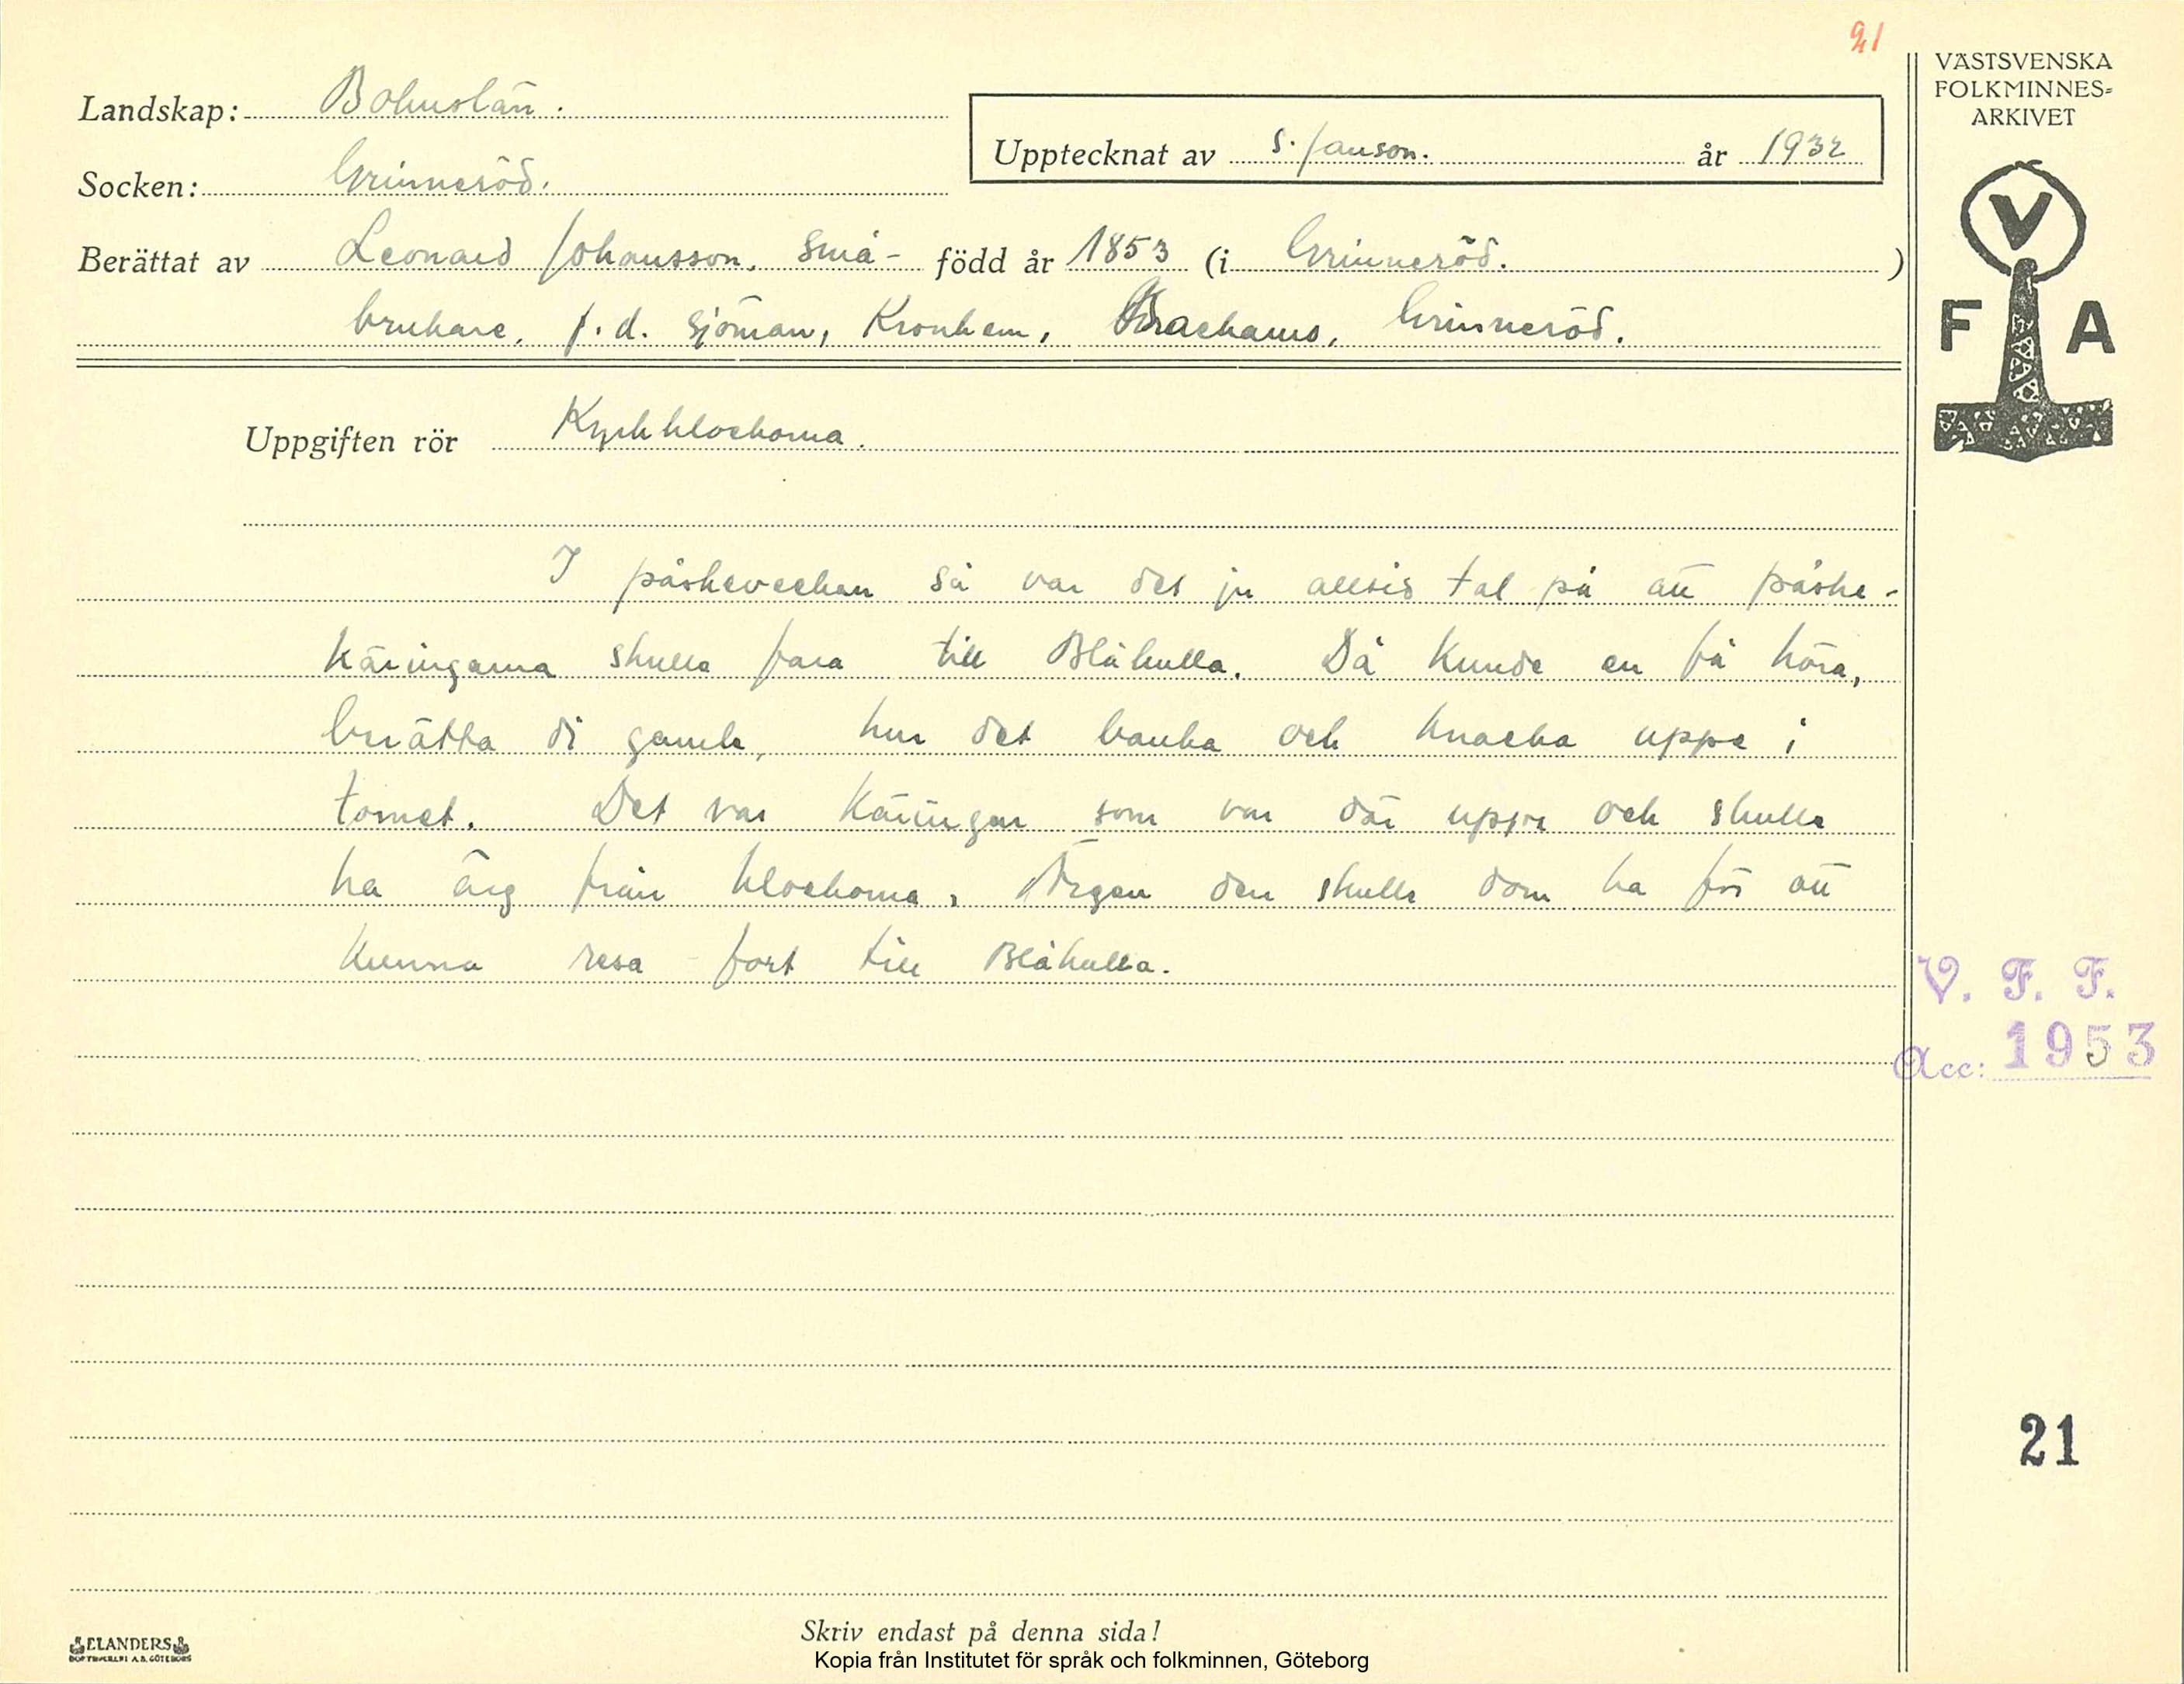 21
VÄSTSVENSKA
FOLKMINNES=
ARKIVET
Landskap: Bohuslän.
Upptecknat av S. Janson. år 1932
Socken: Grinneröd.
Berättat av Leonard Johansson, små- född år 1853 (i Grinneröd. )
brukare, f.d. sjöman, Kronhem, Backamo, Grinneröd.
V
F A
Uppgiften rör Kyrkklockorna.
I påskeveckan så var det ju alltid tal på att påske-
käringarna skulle fara till Blåkulla. Då kunde en få höra,
berätta di gamle, hur det banka och knacka uppe i
tornet. Det var käringar som var där uppe och skulle
ha ärg från klockorna, Ärgen den skulle dom ha för att
kunna resa fort till Blåkulla.
V. F. F.
Acc: 1953
21
Skriv endast på denna sida!
ELANDERS
BOKTRYCKERI A.B. GÖTEBORG
Kopia från Institutet för språk och folkminnen, Göteborg